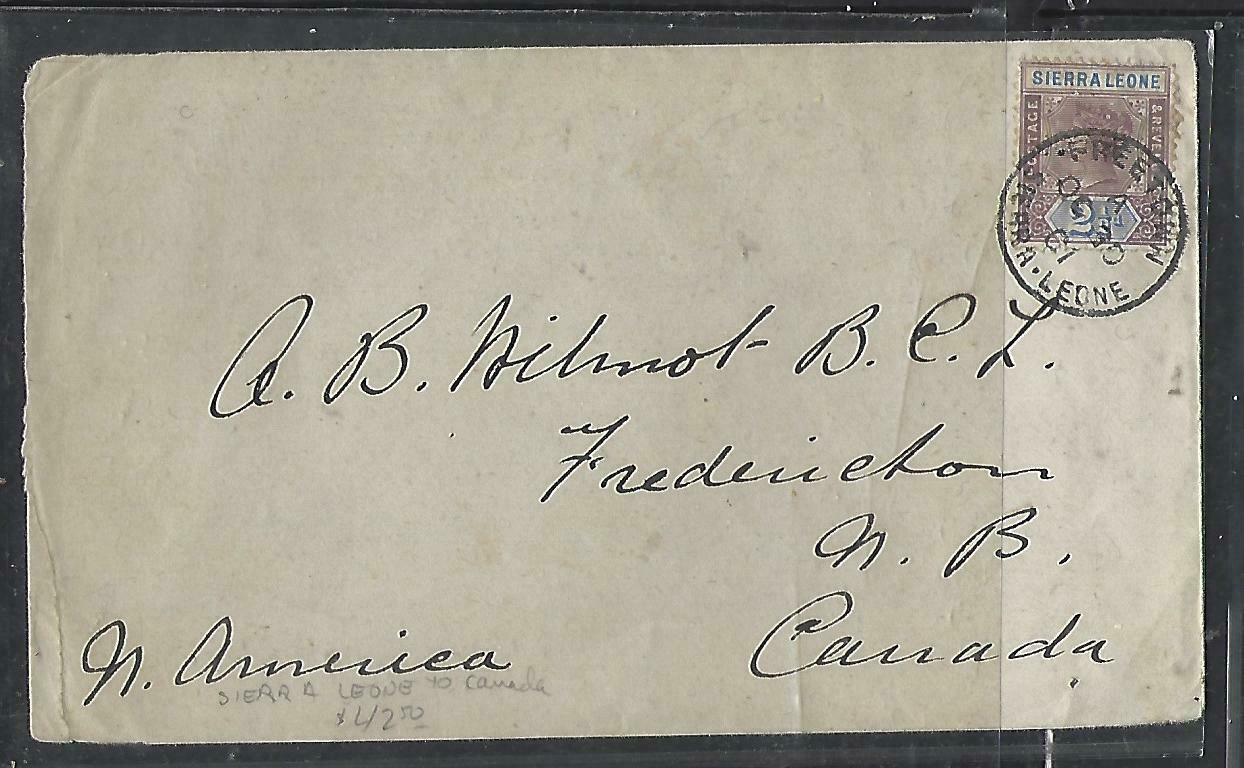 SIERRA LEONE
POSTAGE & REVENUE
2½d
FREETOWN
LEONE
A. B. Wilmot B. C. L.
Fredericton
N. B.
Canada
N. America
SIERRA LEONE to Canada
$42.50